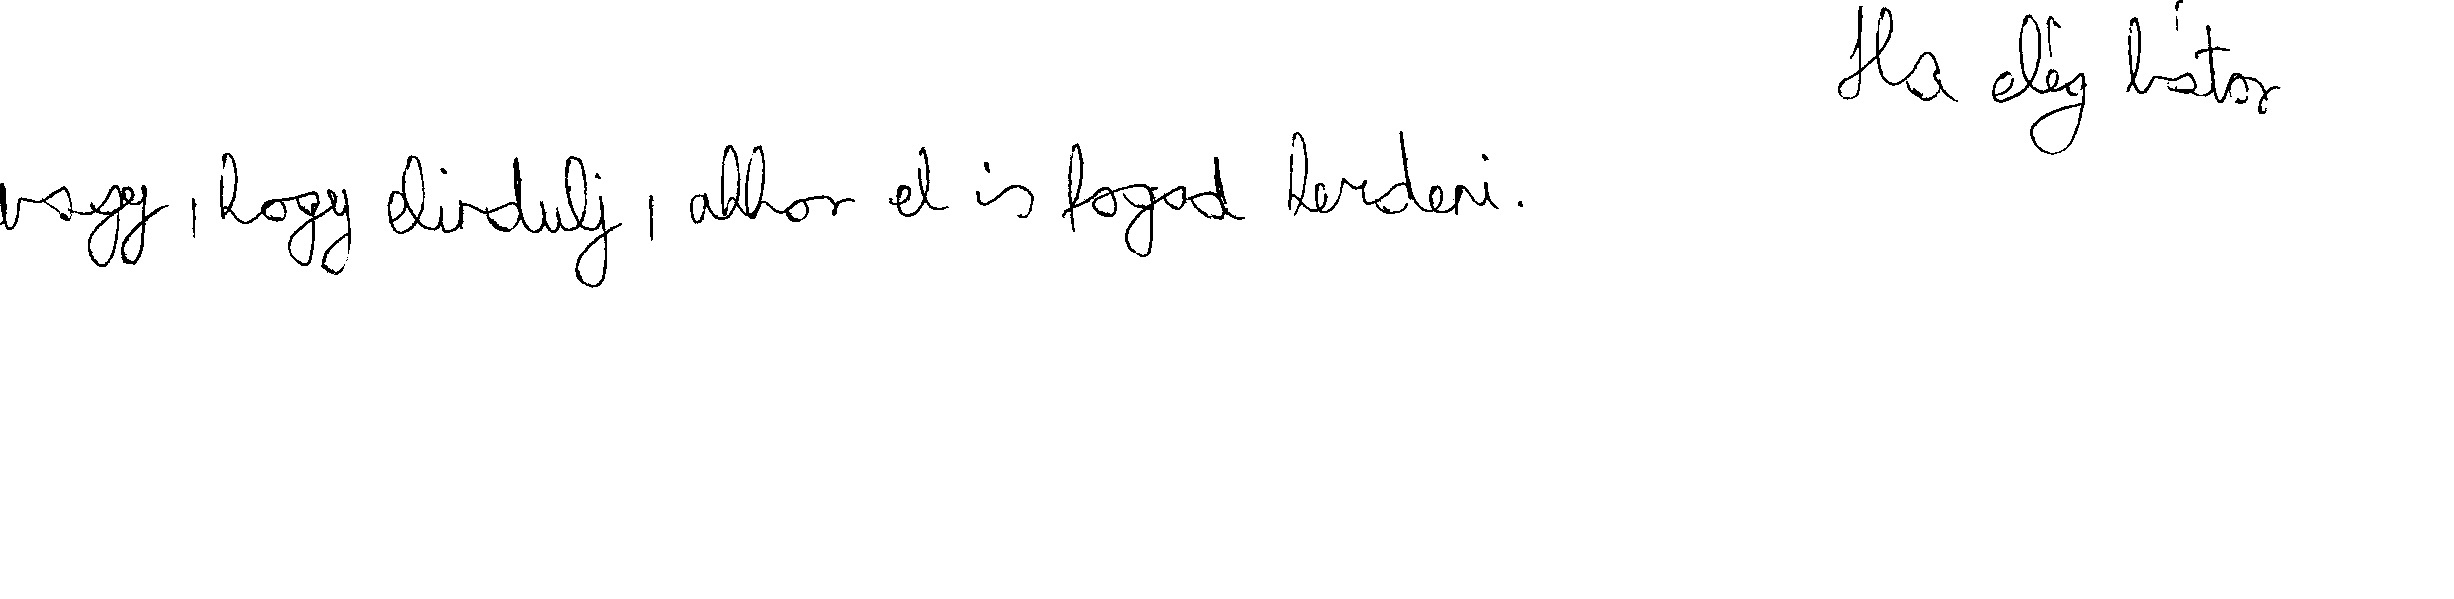 Ha elég bátor
vagy, hogy elindulj, akkor el is fogod kezdeni.